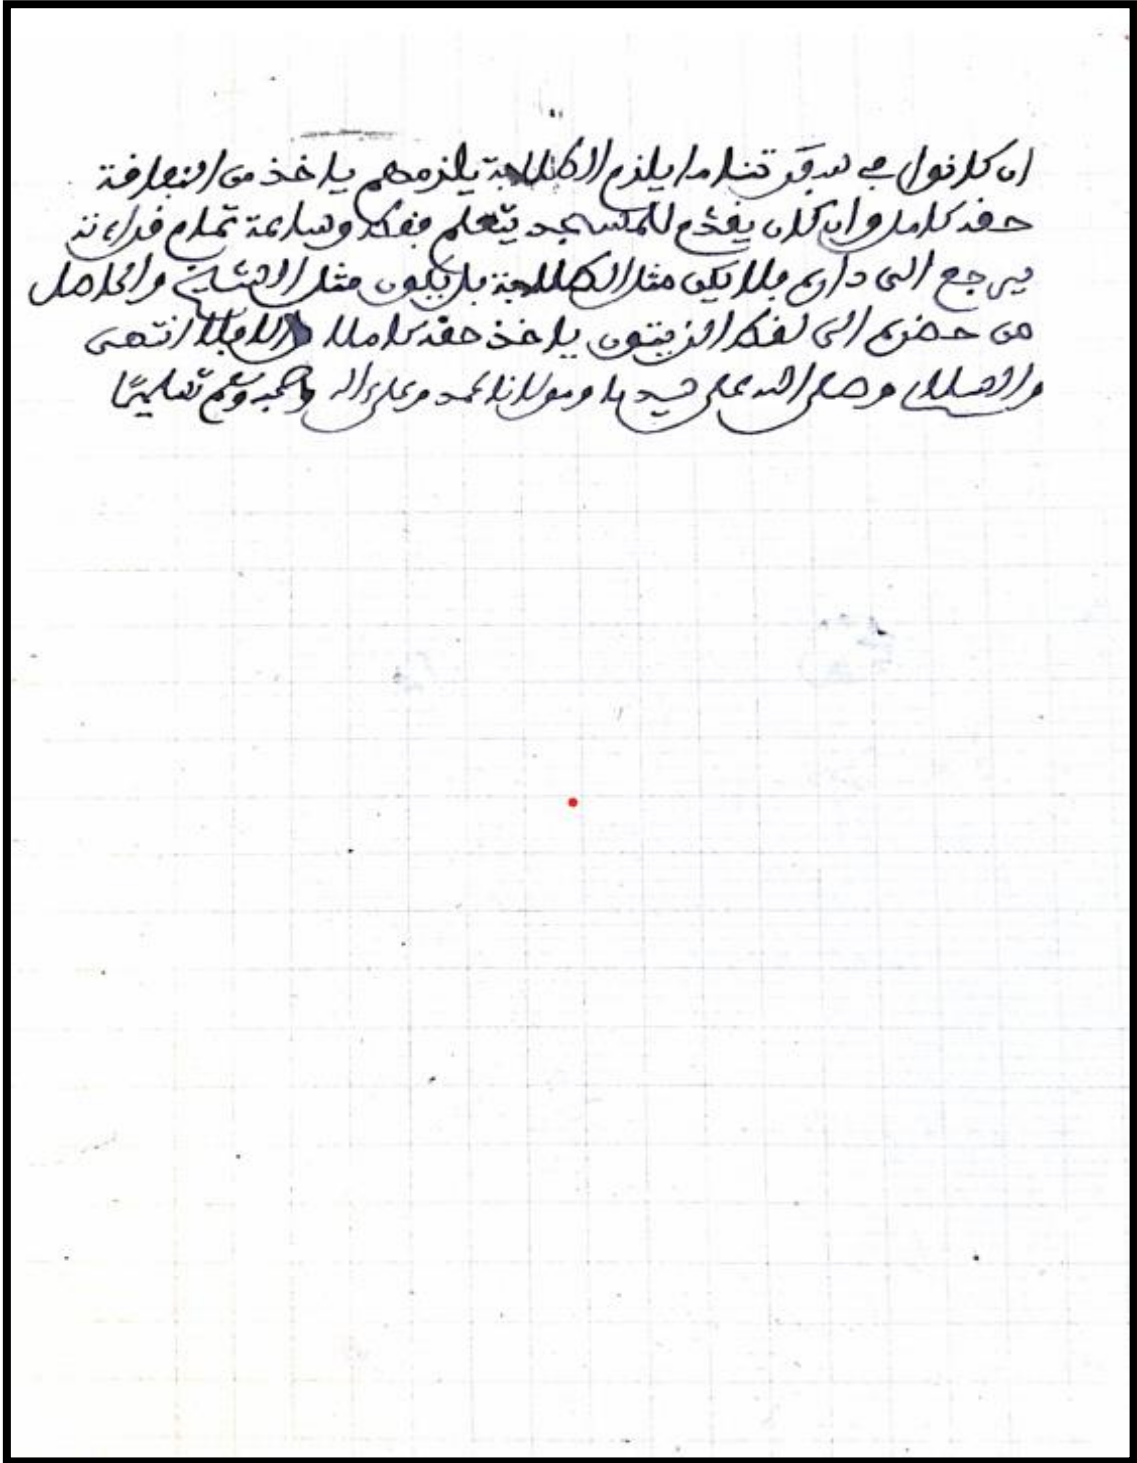 ان كانوا في ما يلزم الطلبة يلزمهم ياخذ من النفارفة
حقه كامل وان كان يقدم للمسجد يتعلم فقط وساعة تمام قراءته
يرجع الى داره فلا يكن مثل الطلبة بل يكون مثل والحاصل
من حضر الى لقط الزيتون ياخذ حقه كاملا والا فلا انتهى
والسلام وصلى الله على سيدنا ومولانا محمد وعلى اله وصحبه وسلم تسليمًا